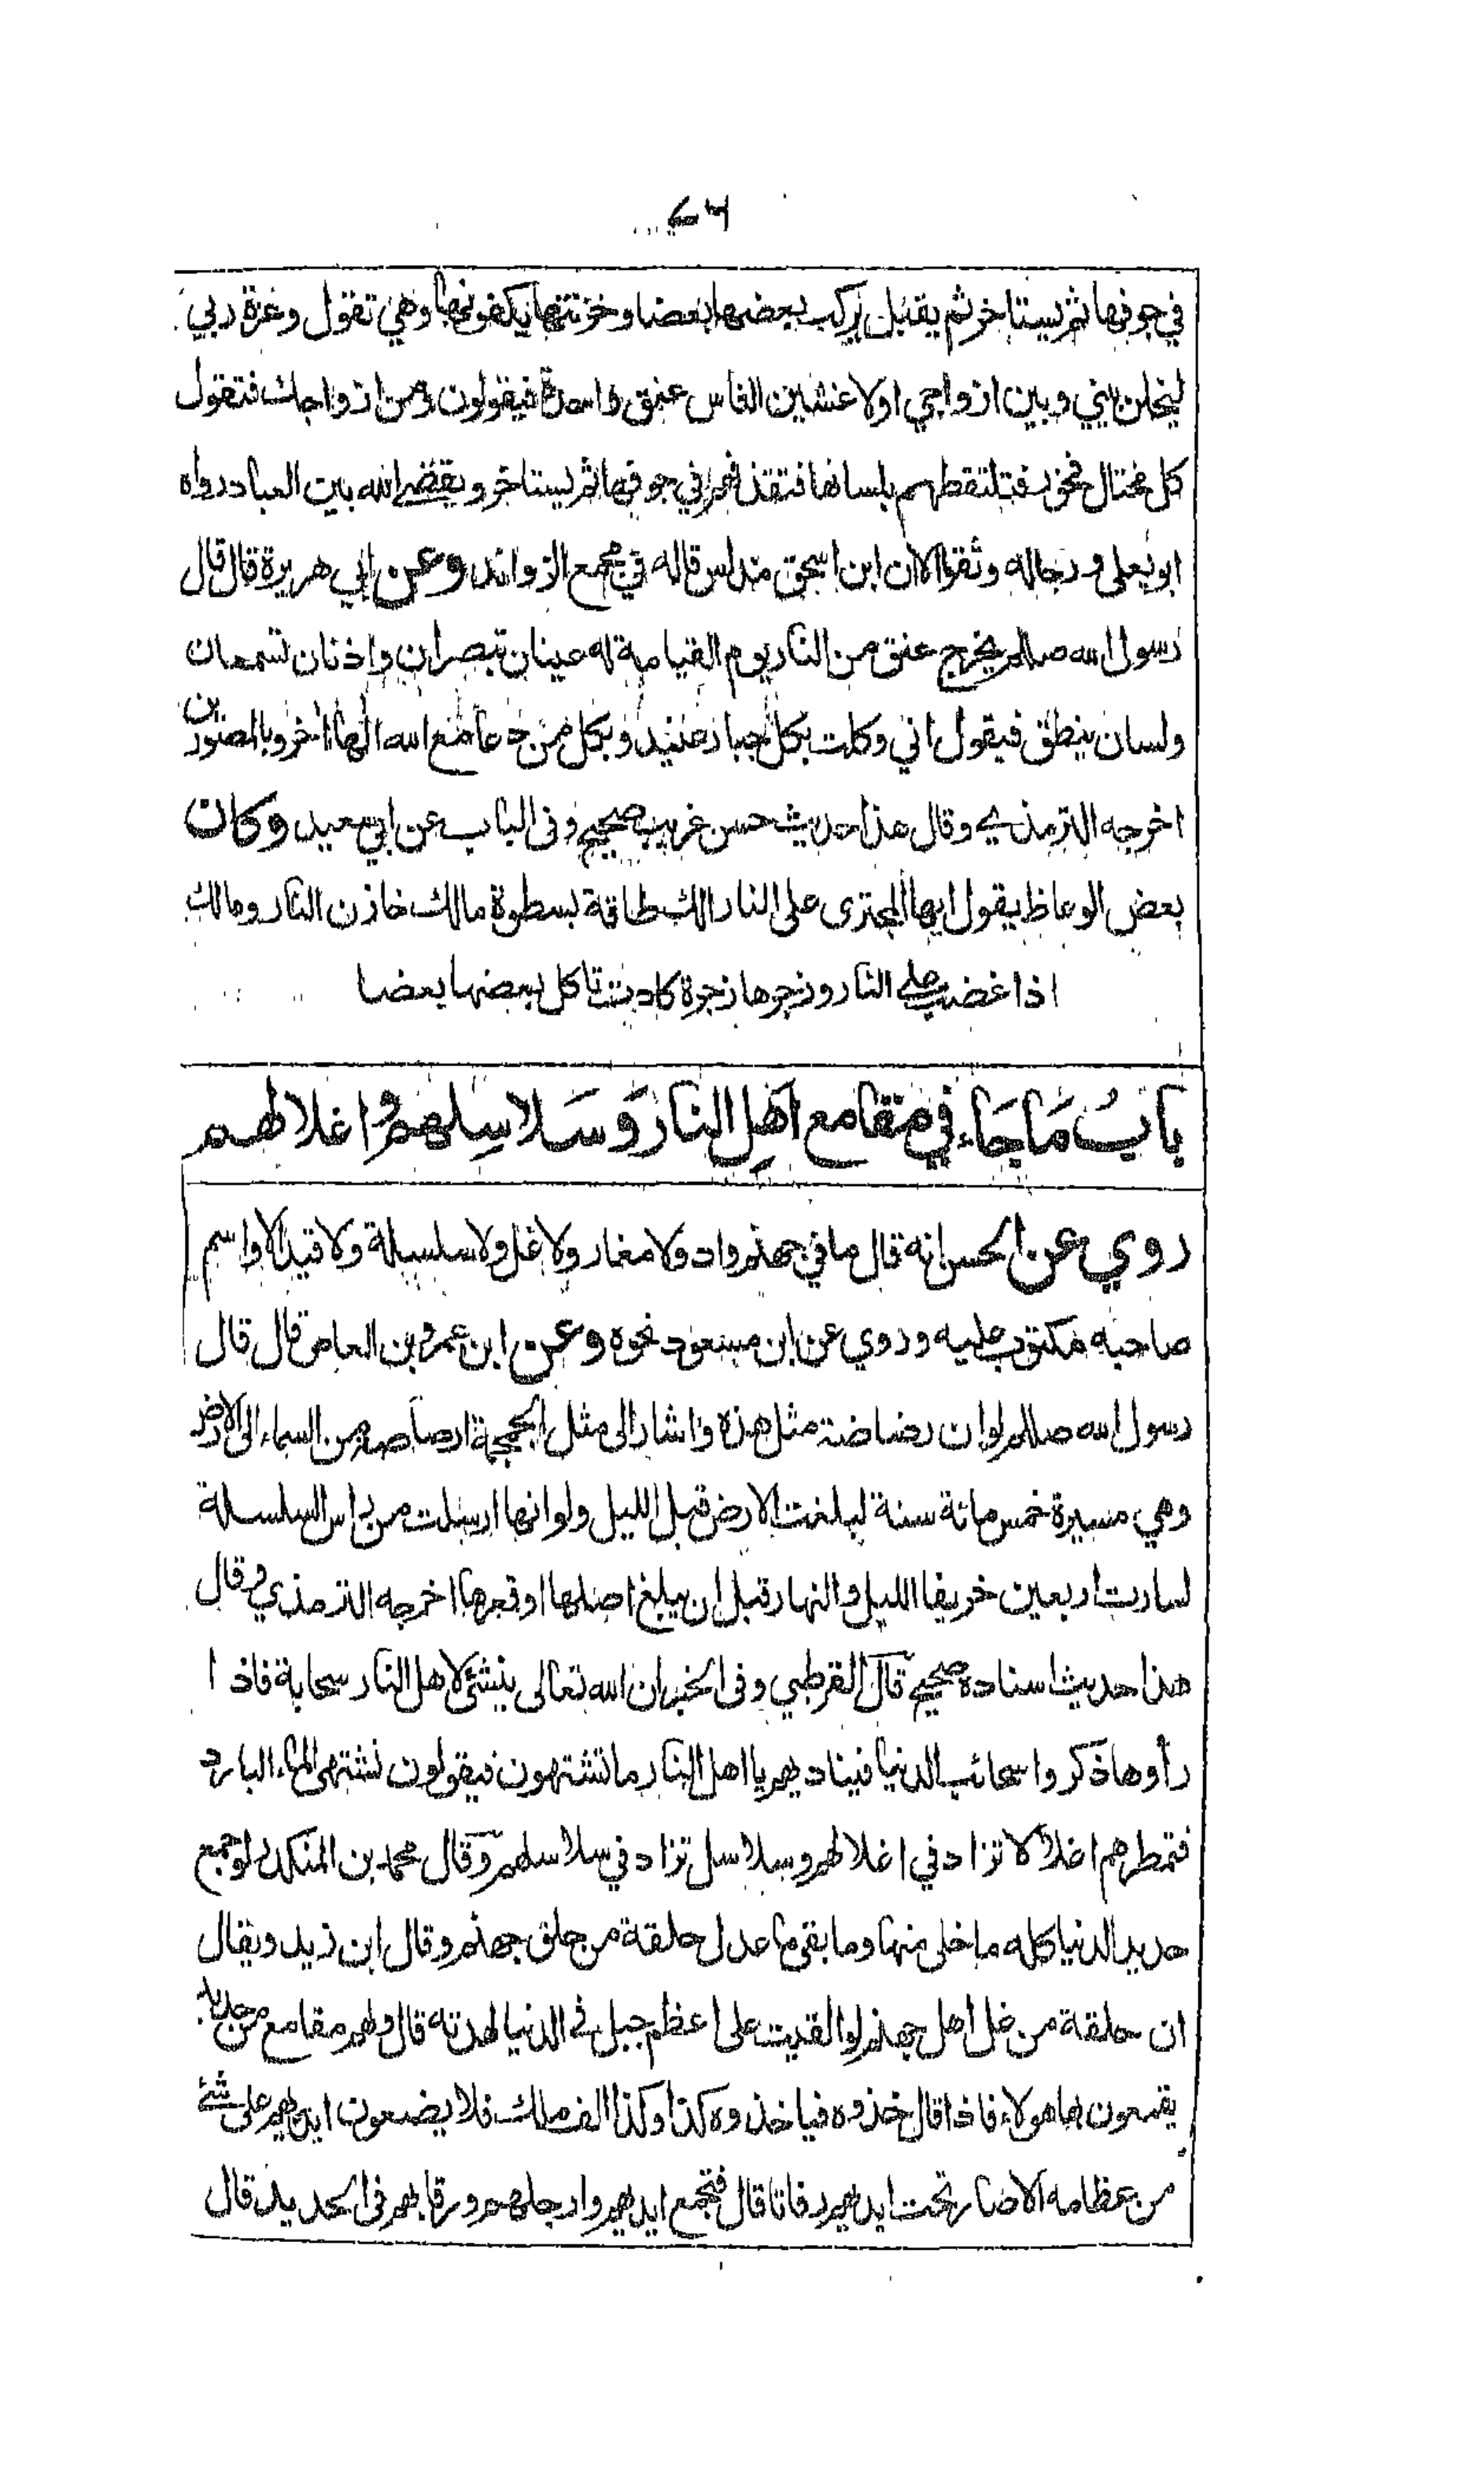 ٤٦
في جوفها ثم يستاخر ثم يقبل يركب بعضها بعضا وخزنتها يكفونها وهي تقول وعزة ربي
ليخلن بيني وبين ازواجي اولاغشين الناس عنق واحدة فيقولون ومن ازواجك فتقول
كل مختال فخور فتلتقطهم بلسانها فتقذفهم في جوفها ثم يستاخر ويقضي الله بين العباد رواه
ابو يعلى ورجاله وثقوا الا ان ابن اسحق مدلس قاله في مجمع الزوائد وعن ابي هريرة قال قال
رسول الله صللم يخرج عنق من النار يوم القيامة له عينان تبصران واذنان تسمعان
ولسان ينطق فيقول اني وكلت بكل جبار عنيد وبكل من دعا مع الله الها اخر وبالمصورين
اخرجه الترمذي وقال هذا حديث حسن غريب صحيح وفى الباب عن ابي سعيد وكان
بعض الوعاظ يقول ايها المجترى على النار الك طاقة بسطوة مالك خازن النار ومالك
اذا غضب على النار وزجرها زجرة كادت تاكل بعضها بعضا
بَابُ مَاجَاءَ في مقامع اَهلِ النار وَسَلاسِلهم واغلالهم
روي عن الحسن انه قال ما في جهنم واد ولا مغار ولا غل ولا سلسلة ولا قيد الا واسم
صاحبه مكتوب عليه وروي عن ابن مسعود نحوه وعن ابن عمرو بن العاص قال قال
رسول الله صللم لوان رضاضة مثل هذه واشار الى مثل الجمجمة ارصاصة من السماء الى الارض
وهي مسيرة خمس مائة سنة لبلغت الارض قبل الليل ولو انها ارسلت من راس السلسلة
لسارت اربعين خريفا الليل والنهار قبل ان يبلغ اصلها او قعرها اخرجه الترمذي وقال
هذا حديث اسناده صحيح قال القرطبي وفى الخبر ان الله تعالى ينشئ لاهل النار سحابة فاذا
رأوها ذكروا سحائب الدنيا فيناديهم يا اهل النار ما تشتهون فيقولون نشتهي الماء البارد
فتمطرهم اغلالا تزاد في اغلالهم وسلاسل تزاد في سلاسلهم وقال محمد بن المنكدر لو جمع
حديد الدنيا كله ما خلى منها وما بقى ما عدل حلقة من حلق جهنم وقال ابن زيد ويقال
ان حلقة من غل اهل جهنم لو القيت على اعظم جبل في الدنيا لهدته قال ولهم مقامع من حديد
يقمعون بها هولاء فاذا قال خذوه فياخذوه كذا وكذا الف ملك فلا يضعون ايديهم على شئ
من عظامه الا صار تحت ايديهم رفاتا قال فتجمع ايديهم وارجلهم ورقابهم فى الحديد قال